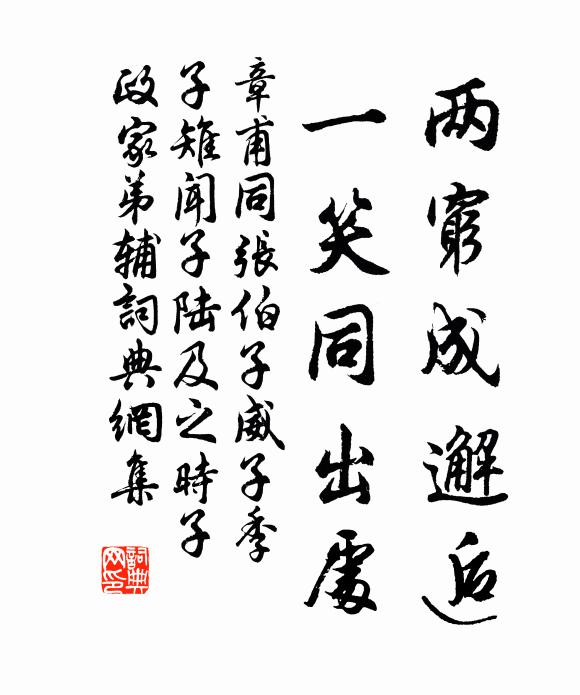 两窮成邂逅
一笑同出處
章甫同張伯子威子季
子雉聞子陸及之時子
政家弟輔詞典網集
詞典网印